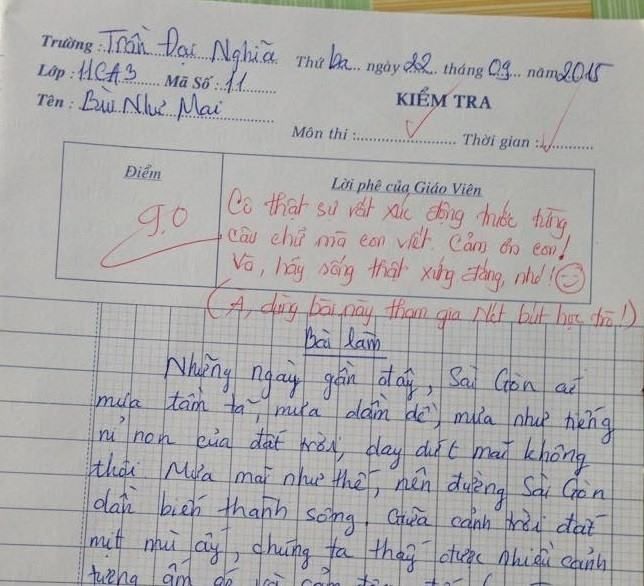 Trường : Trần Đại Nghĩa Thứ ba ngày 22 tháng 09 năm 2015
Lớp : 11CA3 Mã Số : 11
KIỂM TRA
Tên : Bùi Như Mai
Môn thi : Thời gian :
Điểm Lời phê của Giáo Viên
9.0
Cô thật sự rất xúc động trước từng
câu chữ mà con viết. Cảm ơn con!
Và, hãy sống thật xứng đáng, nhé!
(À, dùng bài này tham gia Nét bút học trò!)
Bài làm
Những ngày gần đây, Sài Gòn cứ
mưa tầm tã, mưa dầm dề, mưa như tiếng
nỉ non của đất trời, day dứt mãi không
thôi. Mưa mãi như thế, nên đường Sài Gòn
dần biến thành sông. Giữa cảnh trời đất
mịt mù ấy, chúng ta thấy được nhiều cảnh
tượng ấm